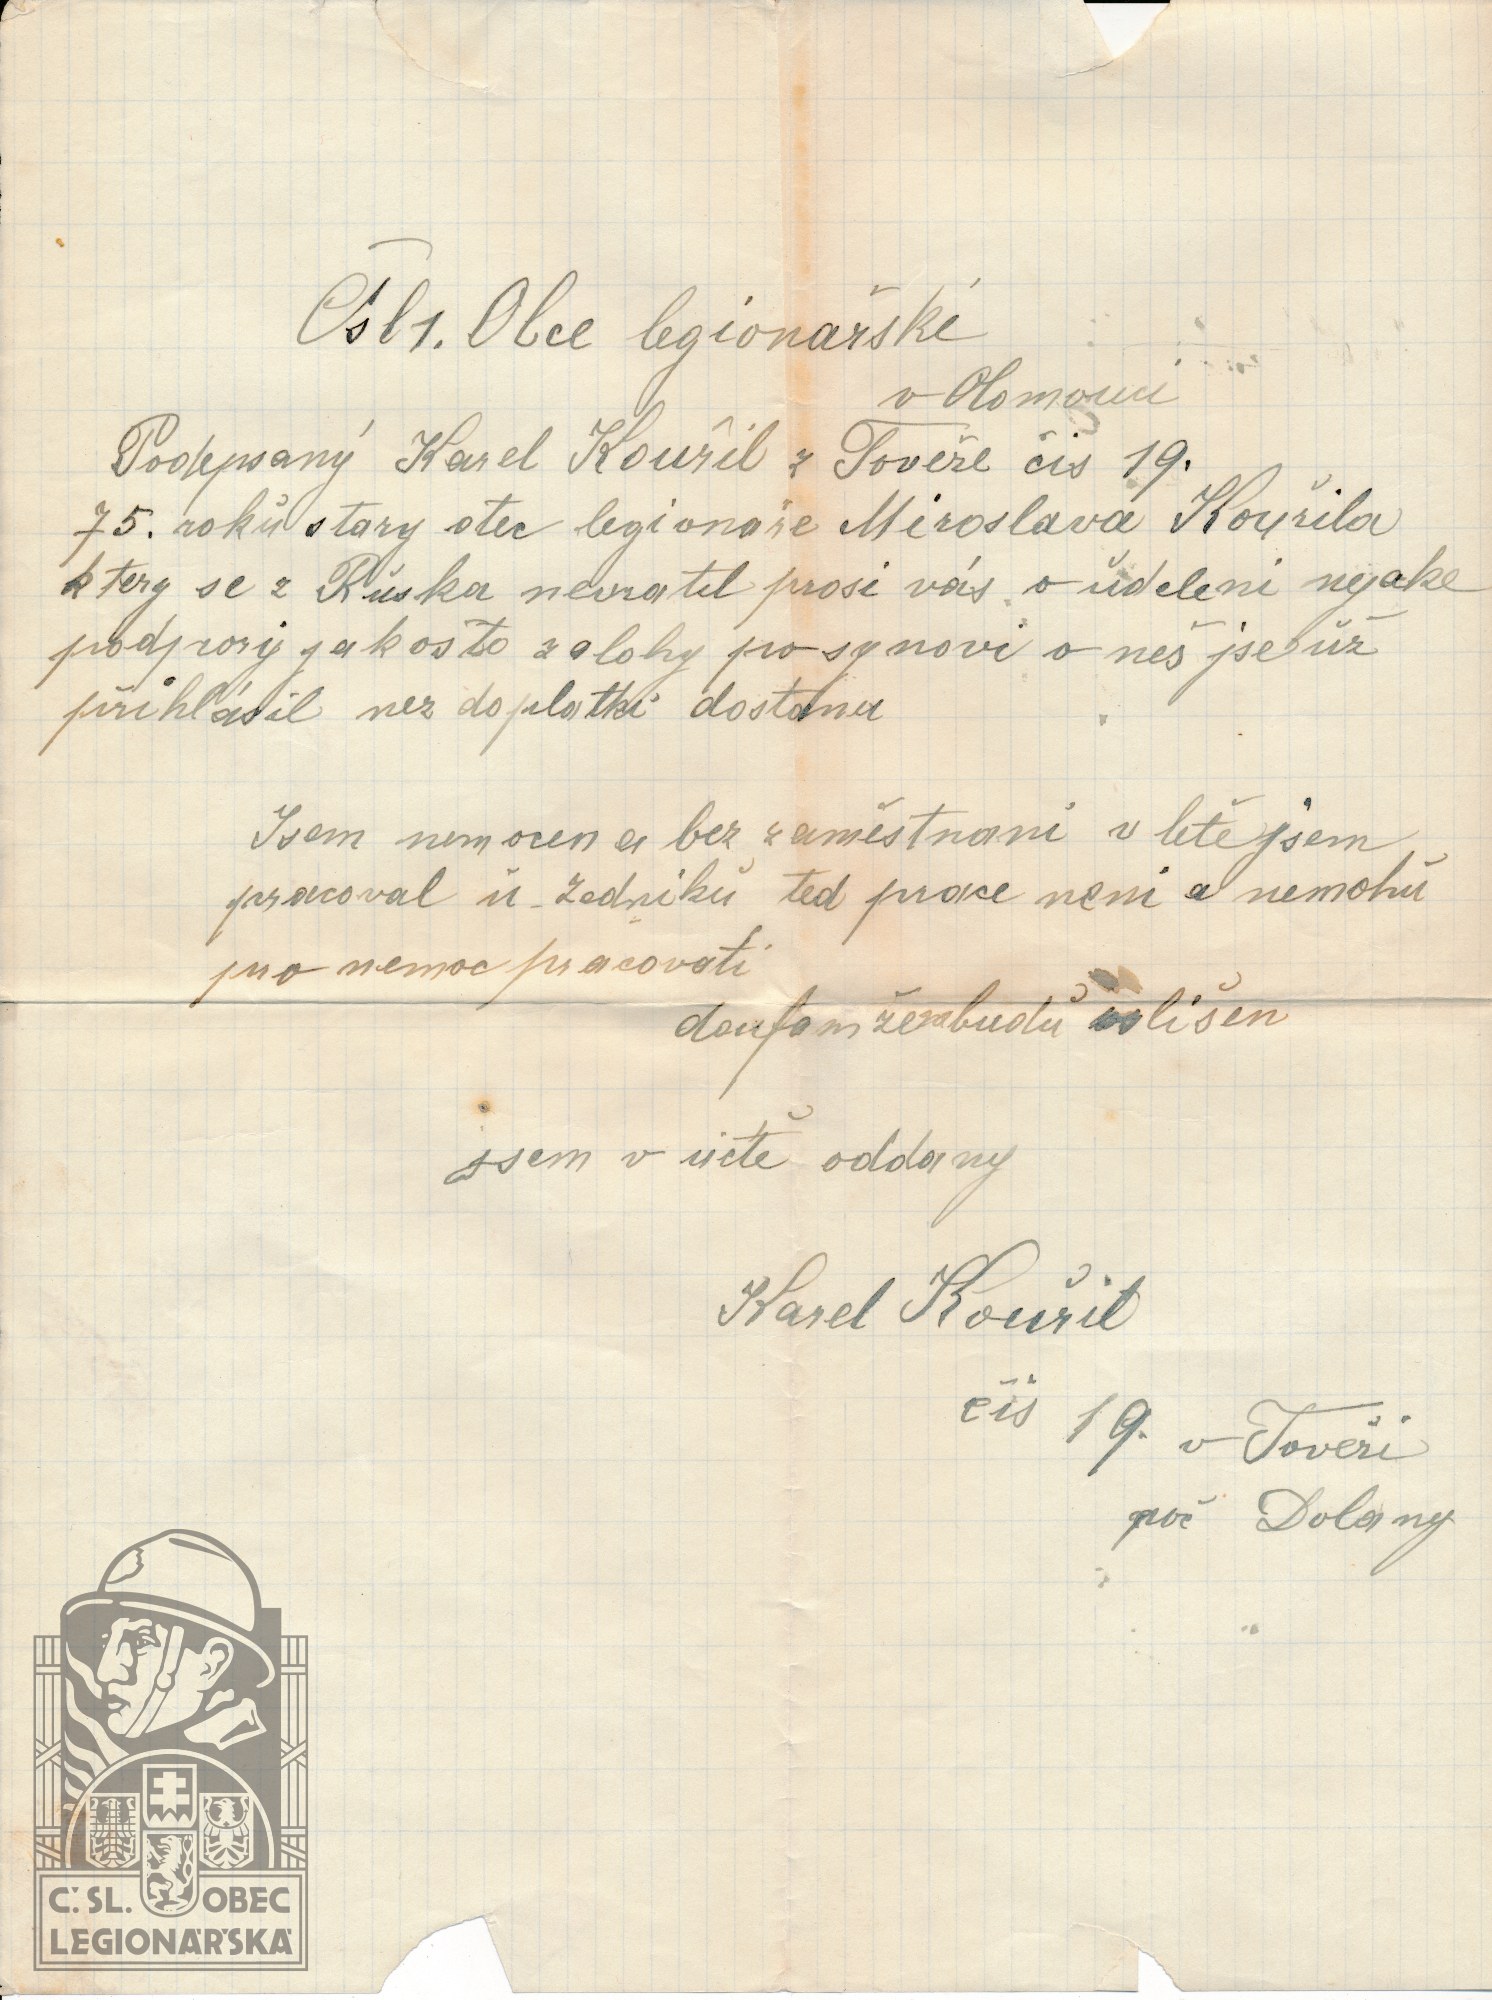 Čsl1. Obce legionařské
v Olomouci
Podepsaný Karel Kouřil z Toveře čis 19.
75. roků stary otec legionaře Miroslava Kouřila
ktery se z Růska nevratil prosi vás o ůdeleni nejake
podpory jakošto zalohy po synovi o neš jse ůž
přihlásil nez doplatki dostanu
Jsem nemocen a bez zaměstnani v letě jsem
pracoval ů zedniků ted prace neni a nemohů
pro nemoc pracovati
doufam že budů ůslišen
jsem v účtě oddany
Karel Kouřil
čis 19. v Toveři
poč Dolany
Č. SL. OBEC
LEGIONÁŘSKÁ